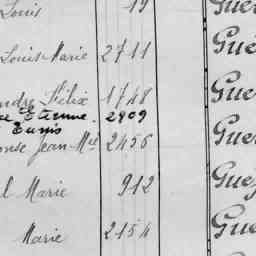 Louis 19 Gue
Louis Marie 2711 Gué
Félix 1748 Gue
Etienne. 2909
Eunis
Jean Mie 2456 Gue
Marie 912 Gué
Marie 2154 Gue